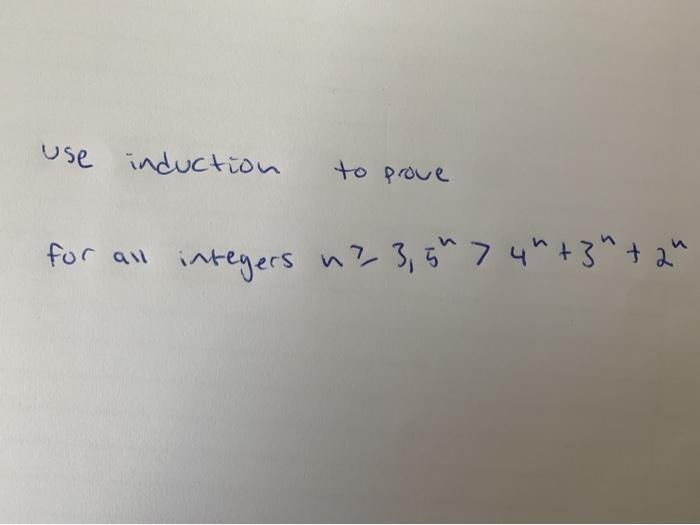 use induction to prove
for all integers n ≥ 3, 5ⁿ > 4ⁿ + 3ⁿ + 2ⁿ